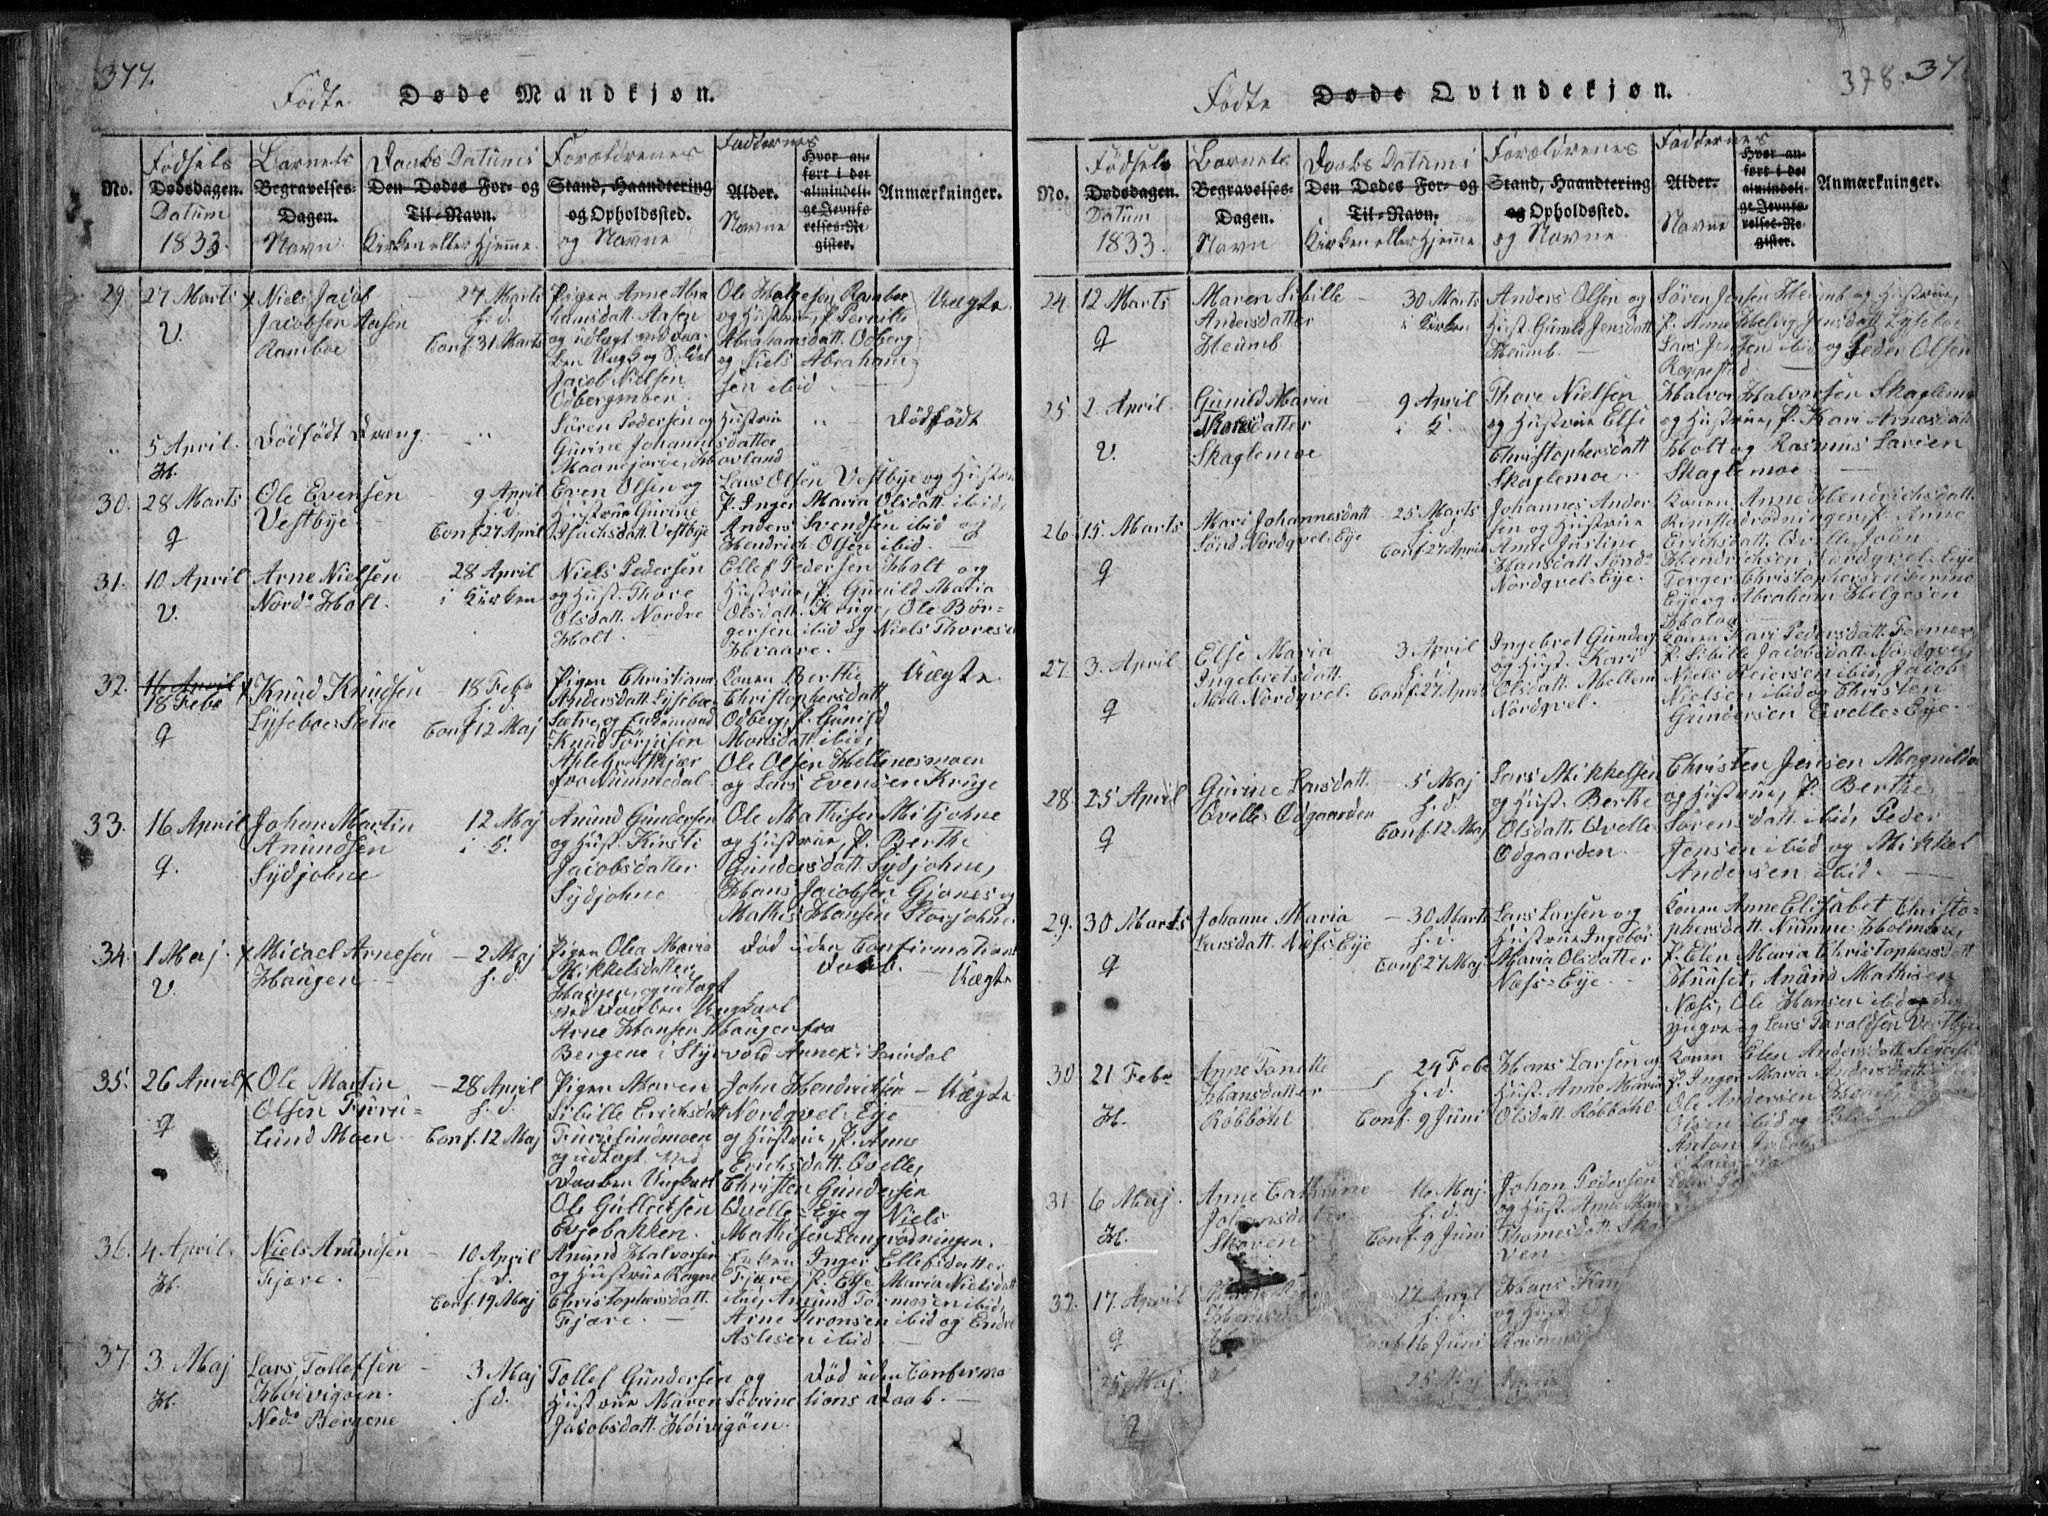 377.
Födte Døde Mandkjøn.
No.
Födsels Dødsdagen. Datum 1833.
Barnets Begravelses-Dagen. Navn
Daabs Datum i Den Dødes For- og Til-Navn. Kirken eller Hjemme
Forældrenes Stand, Haandtering og Opholdssted. og Navne
Faddernes Alder. Navne
Hvor anført i det almindelige Jevnførelses-Register.
Anmærkninger.
29. 27 Marts
V.
Niels Jacob
Jacobsen Aasen
Ramboe
27 Marts
h. d.
Conf. 31 Marts
Pigen Anne Abra
hamsdatt. Aasen
og udlagt ved daa-
ben Ungk. og Soldat
Jacob Nielsen
Odbergmoen
Ole Helgesen Ramboe
og Hustrue, P. Pernille
Abrahamsdatt. Odberg
og Niels Abraham-
sen ibid.
Uægte
" 5 April.
H.
Dödfödt Dreng.
Sören Pedersen og Hustrue
Gurine Johannesdatter
Maanejorde, Hovland
Dödfödt
30. 28 Marts
q
Ole Evensen
Vestbye
9 April
h. d.
Conf. 27 April
Even Olsen og
Hustrue Gurine
Isachsdatt. Vestbye
Lars Olsen Vestbye og Hustrue
P. Inger Maria Olsdatt. ibid,
Anders Svendsen ibid og
Hendrich Olsen ibid.
31. 10 April
V.
Arne Nielsen
Nord. Holt.
28 April
i Kirken
Niels Pedersen
og Hust. Thore
Olsdatt. Nordre
Holt
Ellef Pedersen Holt og
Hustrue, P. Gunild Maria
Olsdatt. Kruge, Ole Bör-
gersen ibid og Niels Thoresen
Hvaare.
32. 16 April
18 Febr
q
Knud Knudsen
Lyseboe Sætre
18 Febr
h. d.
Conf. 12 Maj
Pigen Christiane
Andersdatt. Lyseboe
Sætre, og Enkemand
Knud Törjusen
fra Nummedal
Conen Berthe
Christophersdatt.
Odberg, P. Gunild
Monsdatt. ibid,
Ole Olsen Hellenesmoen
og Lars Evensen Kruge
Uægte
33. 16 April
q.
Johan Martin
Anundsen
Sydjohne
12 Maj
i K.
Anund Gundersen
og Hust. Kirsti
Jacobsdatter
Sydjohne
Ole Mathisen Mitjohne
og Hustrue, P. Berthe
Gundersdatt. Sydjohne,
Hans Jacobsen Gjones og
Mathis Hansen Storjohne.
34. 1 Maj.
V.
Micael Arnesen
Haugen
2 Maj
h. d.
Pigen Olea Maria
Mikkelsdatter
Haugen, og udlagt
ved Daaben Ungkarl
Arne Hansen Haugen fra
Bergene i Styrvold Annex i Laurdal
Död uden Confirmations
Daab.
Uægte
35. 26 April
q
Ole Martin
Olsen Furu-
lund Moen
28 April
h. d.
Conf. 12 Maj
Pigen Maren
Sibille Erichsdatt
Furulundmoen
og udlagt ved
Daaben Ungkarl
Ole Gulleitsen
Evjebakken.
John Hendrichsen
Nordqvel-Eye
og Hustrue, P. Anne
Erichsdatt. Qvelle,
Christen Gundersen
Qvelle-Eye og Niels
Mathisen Langrödningen.
Uægte
36. 4 April.
H.
Niels Anundsen
Fjære.
10 April
h. d.
Conf. 19 Maj
Anund Halvorsen
og Hustrue Ragne
Christophersdatt.
Fjære.
Enken Inger Ellefsdatter
Fjære, P. Else Maria Nielsdatt
ibid, Amund Tormosen ibid,
Arne Aronsen ibid og Endre
Aslesen ibid.
37. 3. Maj
H.
Lars Tollefsen
Höivigöen.
Ned. Bergene
3 Maj
h. d.
Tollef Gundersen og
Hustrue Maren Sevrine
Jacobsdatt. Höivigöen.
Död uden Confirma
tions daab.
378. 37
Födte Døde Qvindekjøn.
No.
Födsels Dødsdagen. Datum 1833.
Barnets Begravelses-Dagen. Navn
Daabs Datum i Den Dødes For- og Til-Navn. Kirken eller Hjemme
Forældrenes Stand, Haandtering og Opholdssted. og Navne
Faddernes Alder. Navne
Hvor anført i det almindelige Jevnførelses-Register.
Anmærkninger.
24. 12 Marts
q
Maren Sibille
Andersdatter
Heumb
30 Marts
i Kirken
Anders Olsen og
Hust. Gunild Jensdatt
Heumb.
Sören Jensen Heumb og Hustrue,
P. Anne Helvig Jensdatt. Lyseboe
Lars Jensen ibid og Peder Olsen
Roppestad.
25. 2. April.
V.
Gunild Maria
Thoresdatter
Skaglemoe
9 April
i K.
Thore Nielsen
og Hustrue Else
Christophersdatt
Skaglemoe
Halvor Halvorsen Skaglemoe
og Hustrue, P. Kari Arnesdatt
Holt og Rasmus Larsen
Skaglemoe
26. 15. Marts
q
Mari Johannesdatt
Sönd Nordqvel-Eye
25 Marts
h. d.
Conf. 27 April
Johannes Ander
sen og Hustrue
Anne Justine
Hansdatt Sönd.
Nordqvel-Eye.
Konen Anne Hendrichsdatt.
Rimstadrödningen, P. Anne
Erichsdatt. Qvelle, Joän
Hendrichsen Nordqvel-Eye
Terger Christophersen
Eye og Abraham Helgesen
Holoa
27. 3. April
q
Else Maria
Ingebretsdatt.
Mell. Nordqvel.
3 April
h. d.
Conf. 27 April
Ingebret Gunders
og Hust. Kari
Olsdatt. Mellem
Nordqvel.
Konen Kari Pedersdatt.
P. Sibille Jacobsdatt. Nordqvel
Niels Reiersen ibid, Jacob
Nielsen ibid og Christen
Gundersen Qvelle-Eye
28. 25 April
q
Gurine Larsdatt.
Qvelle Odgaarden
5 Maj
h. d.
Conf. 12 Maj
Lars Mikkelsen
og Hust. Berthe
Olsdatt. Qvelle
Odgaarden
Christen Jensen Magnilda
og Hustrue, P. Berthe
Sörensdatt. ibid, Peder
Jensen ibid og Mikkel
Andersen ibid.
29. 30 Marts
q
Johanne Maria
Larsdatt. Næss-Eye
30 Marts
h. d.
Conf. 27 Maj
Lars Larsen og
Hustrue Ingebör
Maria Olsdatter
Næss-Eye
Konen Anne Elisabet Christo-
phersdatt. Numme-Holmen,
P. Elen Maria Christophersdatt
Huuset, Anund Mathisen
Næss, Ole Hansen ibid den
yngre og Lars Taraldsen Vestbye
30. 21 Febr
H.
Anne Tonette
Hansdatter
Röbböhl
24 Febr
h. d.
Conf. 9 Juni
Hans Larsen og
Hust. Anne Maria
Olsdatt. Röbböhl
Konen Elen Andersdatt
P. Inger Maria Andersdatt
Ole Andersen
Olsen ibid og
Anton
i Laurvig
31. 6 Maj.
H.
Anne Cathrine
Johansdatter
Skoven
16 Maj
h. d.
Conf. 9 Juni
Johan Pedersen
og Hust. Anne Maria
Thomesdatt Sko
ven.
32. 17. April
q
27 April
h. d.
Conf. 16 Juni
Hans
og Hust
Rasmus
25 Maj.
q
25 Maj